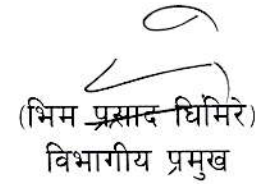 (भिम प्रसाद घिमिरे)
विभागीय प्रमुख